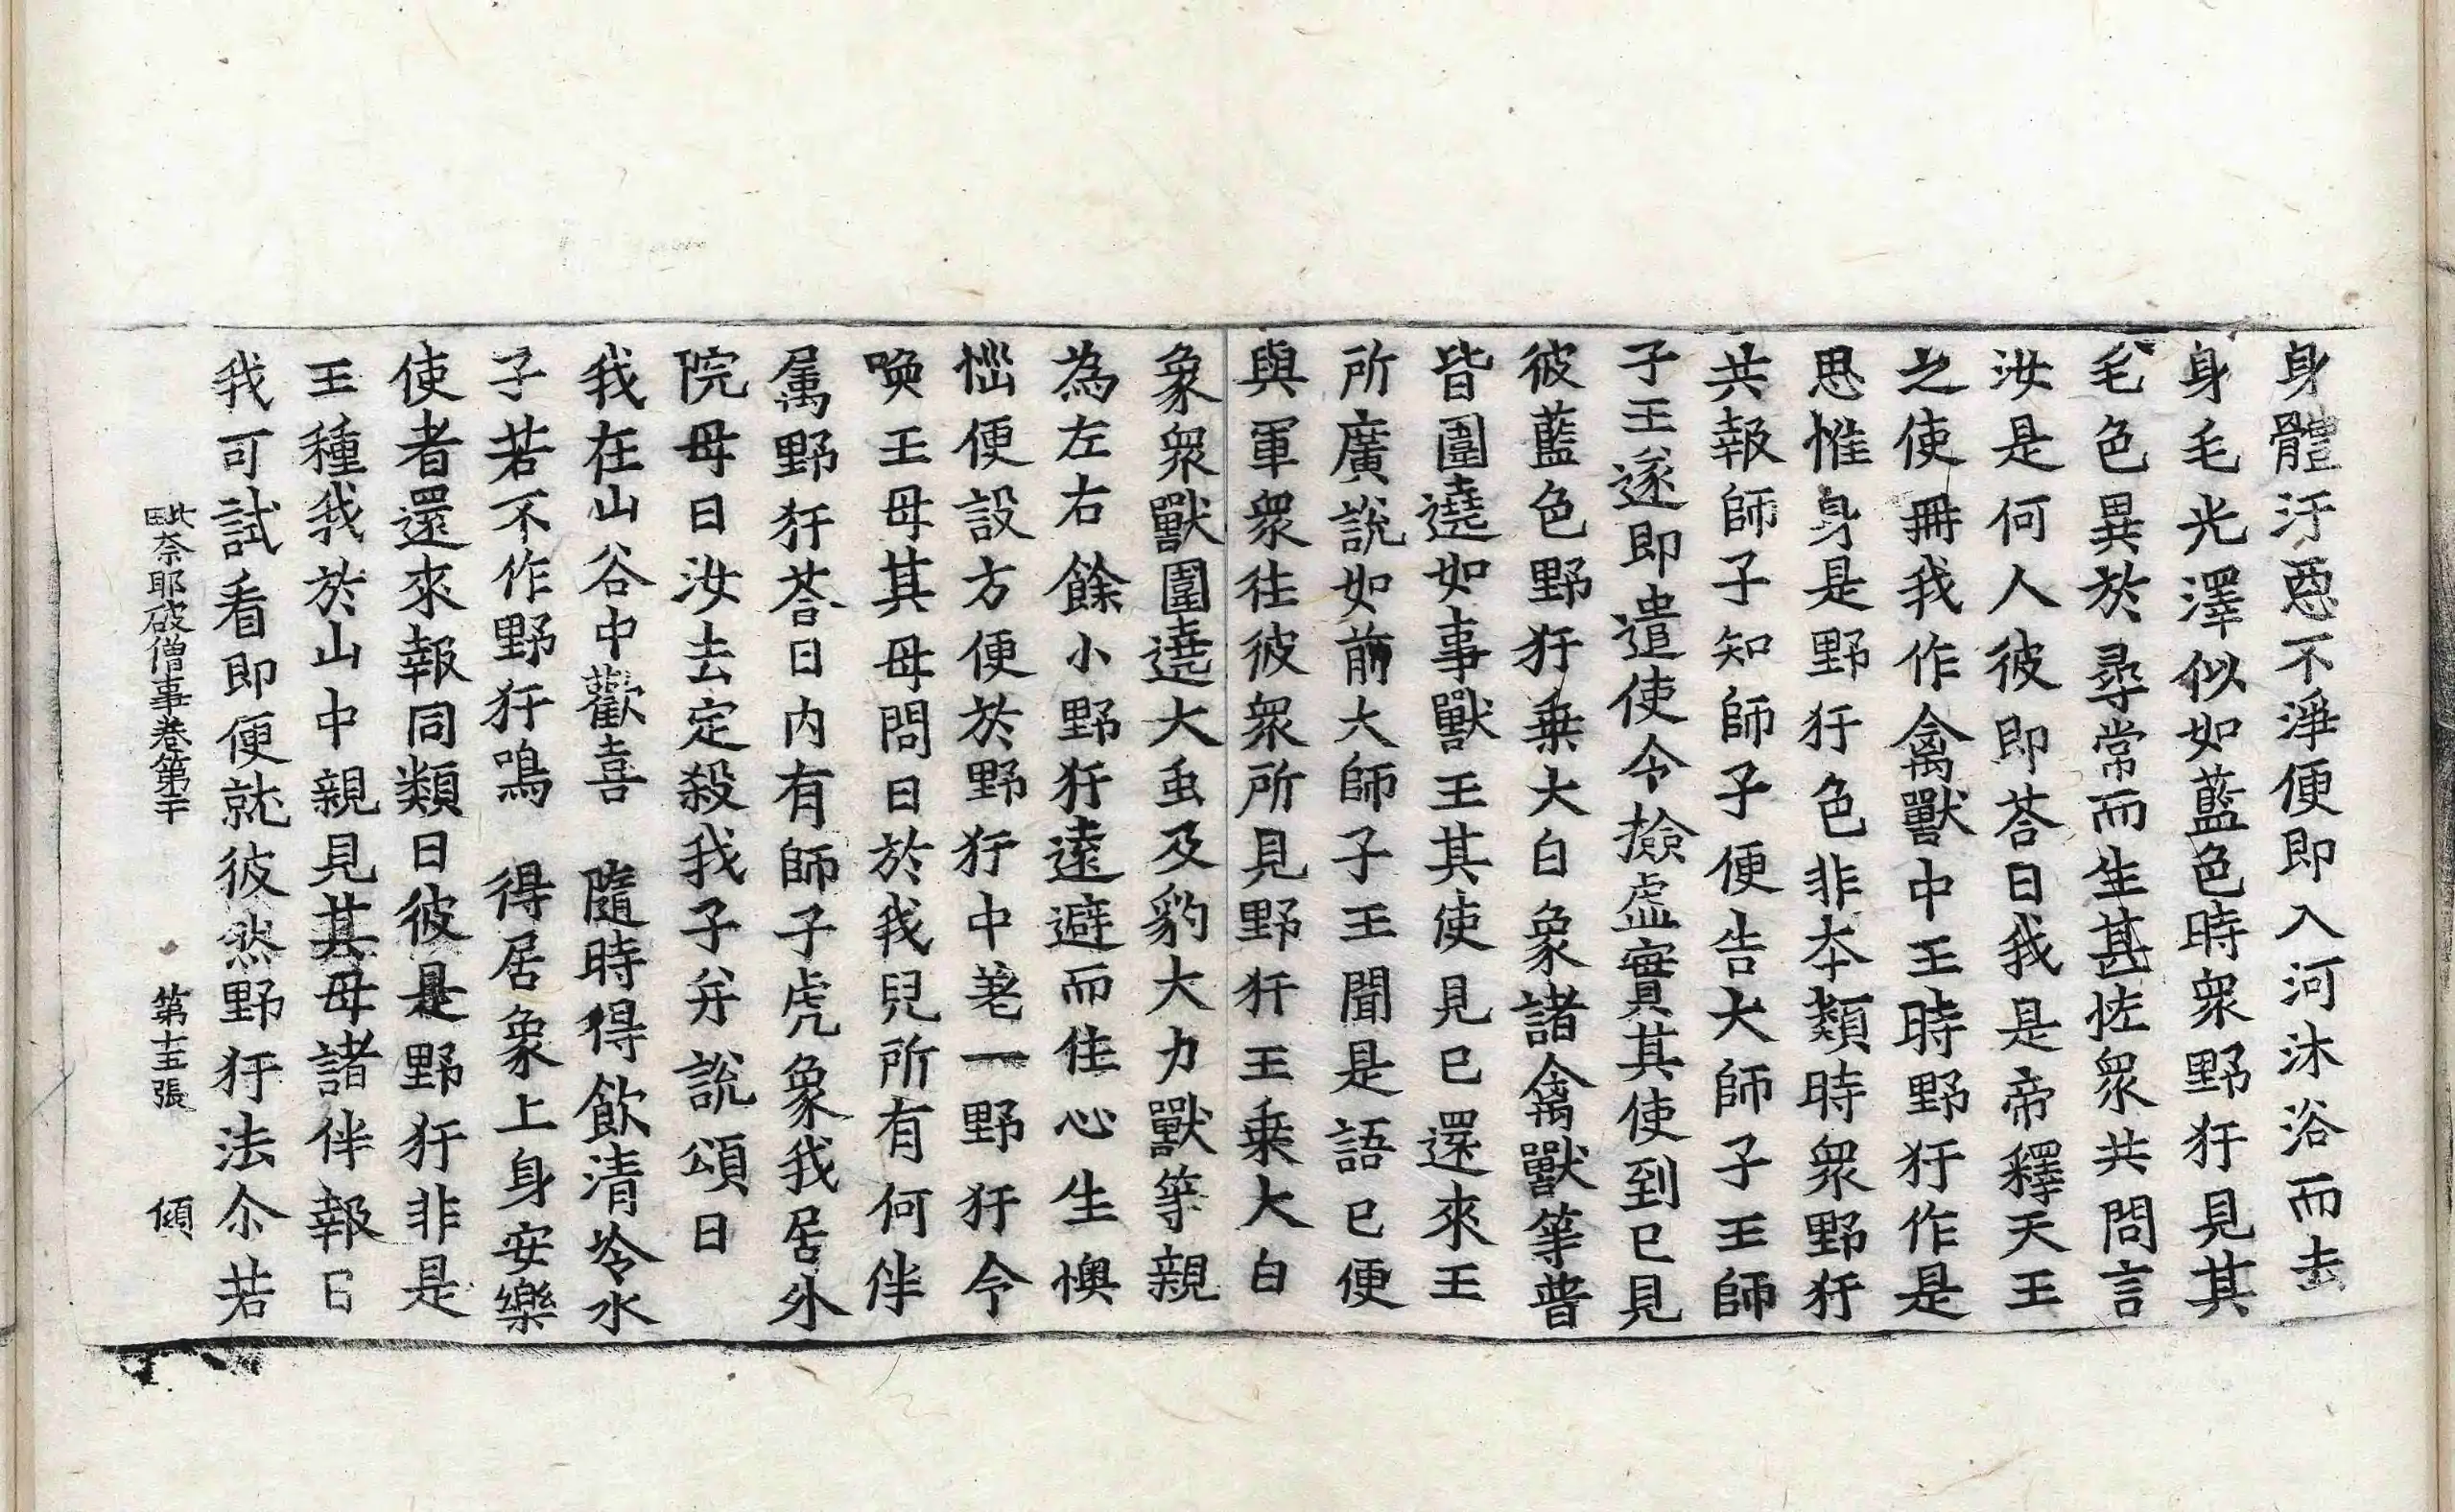 身體汙惡不淨便即入河沐浴而去
身毛光澤似如藍色時衆野犴見其
毛色異於尋常而生甚恠衆共問言
汝是何人彼即荅曰我是帝釋天王
之使冊我作禽獸中王時野犴作是
思惟身是野犴色非本類時衆野犴
共報師子知師子便告大師子王師
子王遂即遣使令撿虛實其使到已見
彼藍色野犴乗大白象諸禽獸等普
皆圍遶如事獸王其使見已還來王
所廣說如前大師子王聞是語已便
與軍衆往彼衆所見野犴王乗大白
象衆獸圍遶大虫及豹大力獸等親
為左右餘小野犴遠避而住心生懊
惱便設方便於野犴中差一野犴令
喚王母其母問曰於我兒所有何伴
属野犴荅曰内有師子虎象我居外
院母曰汝去定殺我子并說頌曰
我在山谷中歡喜　隨時得飲清冷水
子若不作野犴鳴　得居象上身安樂
使者還來報同類曰彼是野犴非是
王種我於山中親見其母諸伴報曰
我可試看即便就彼然野犴法尒若
毗奈耶破僧事卷第二十　第十五張　傾